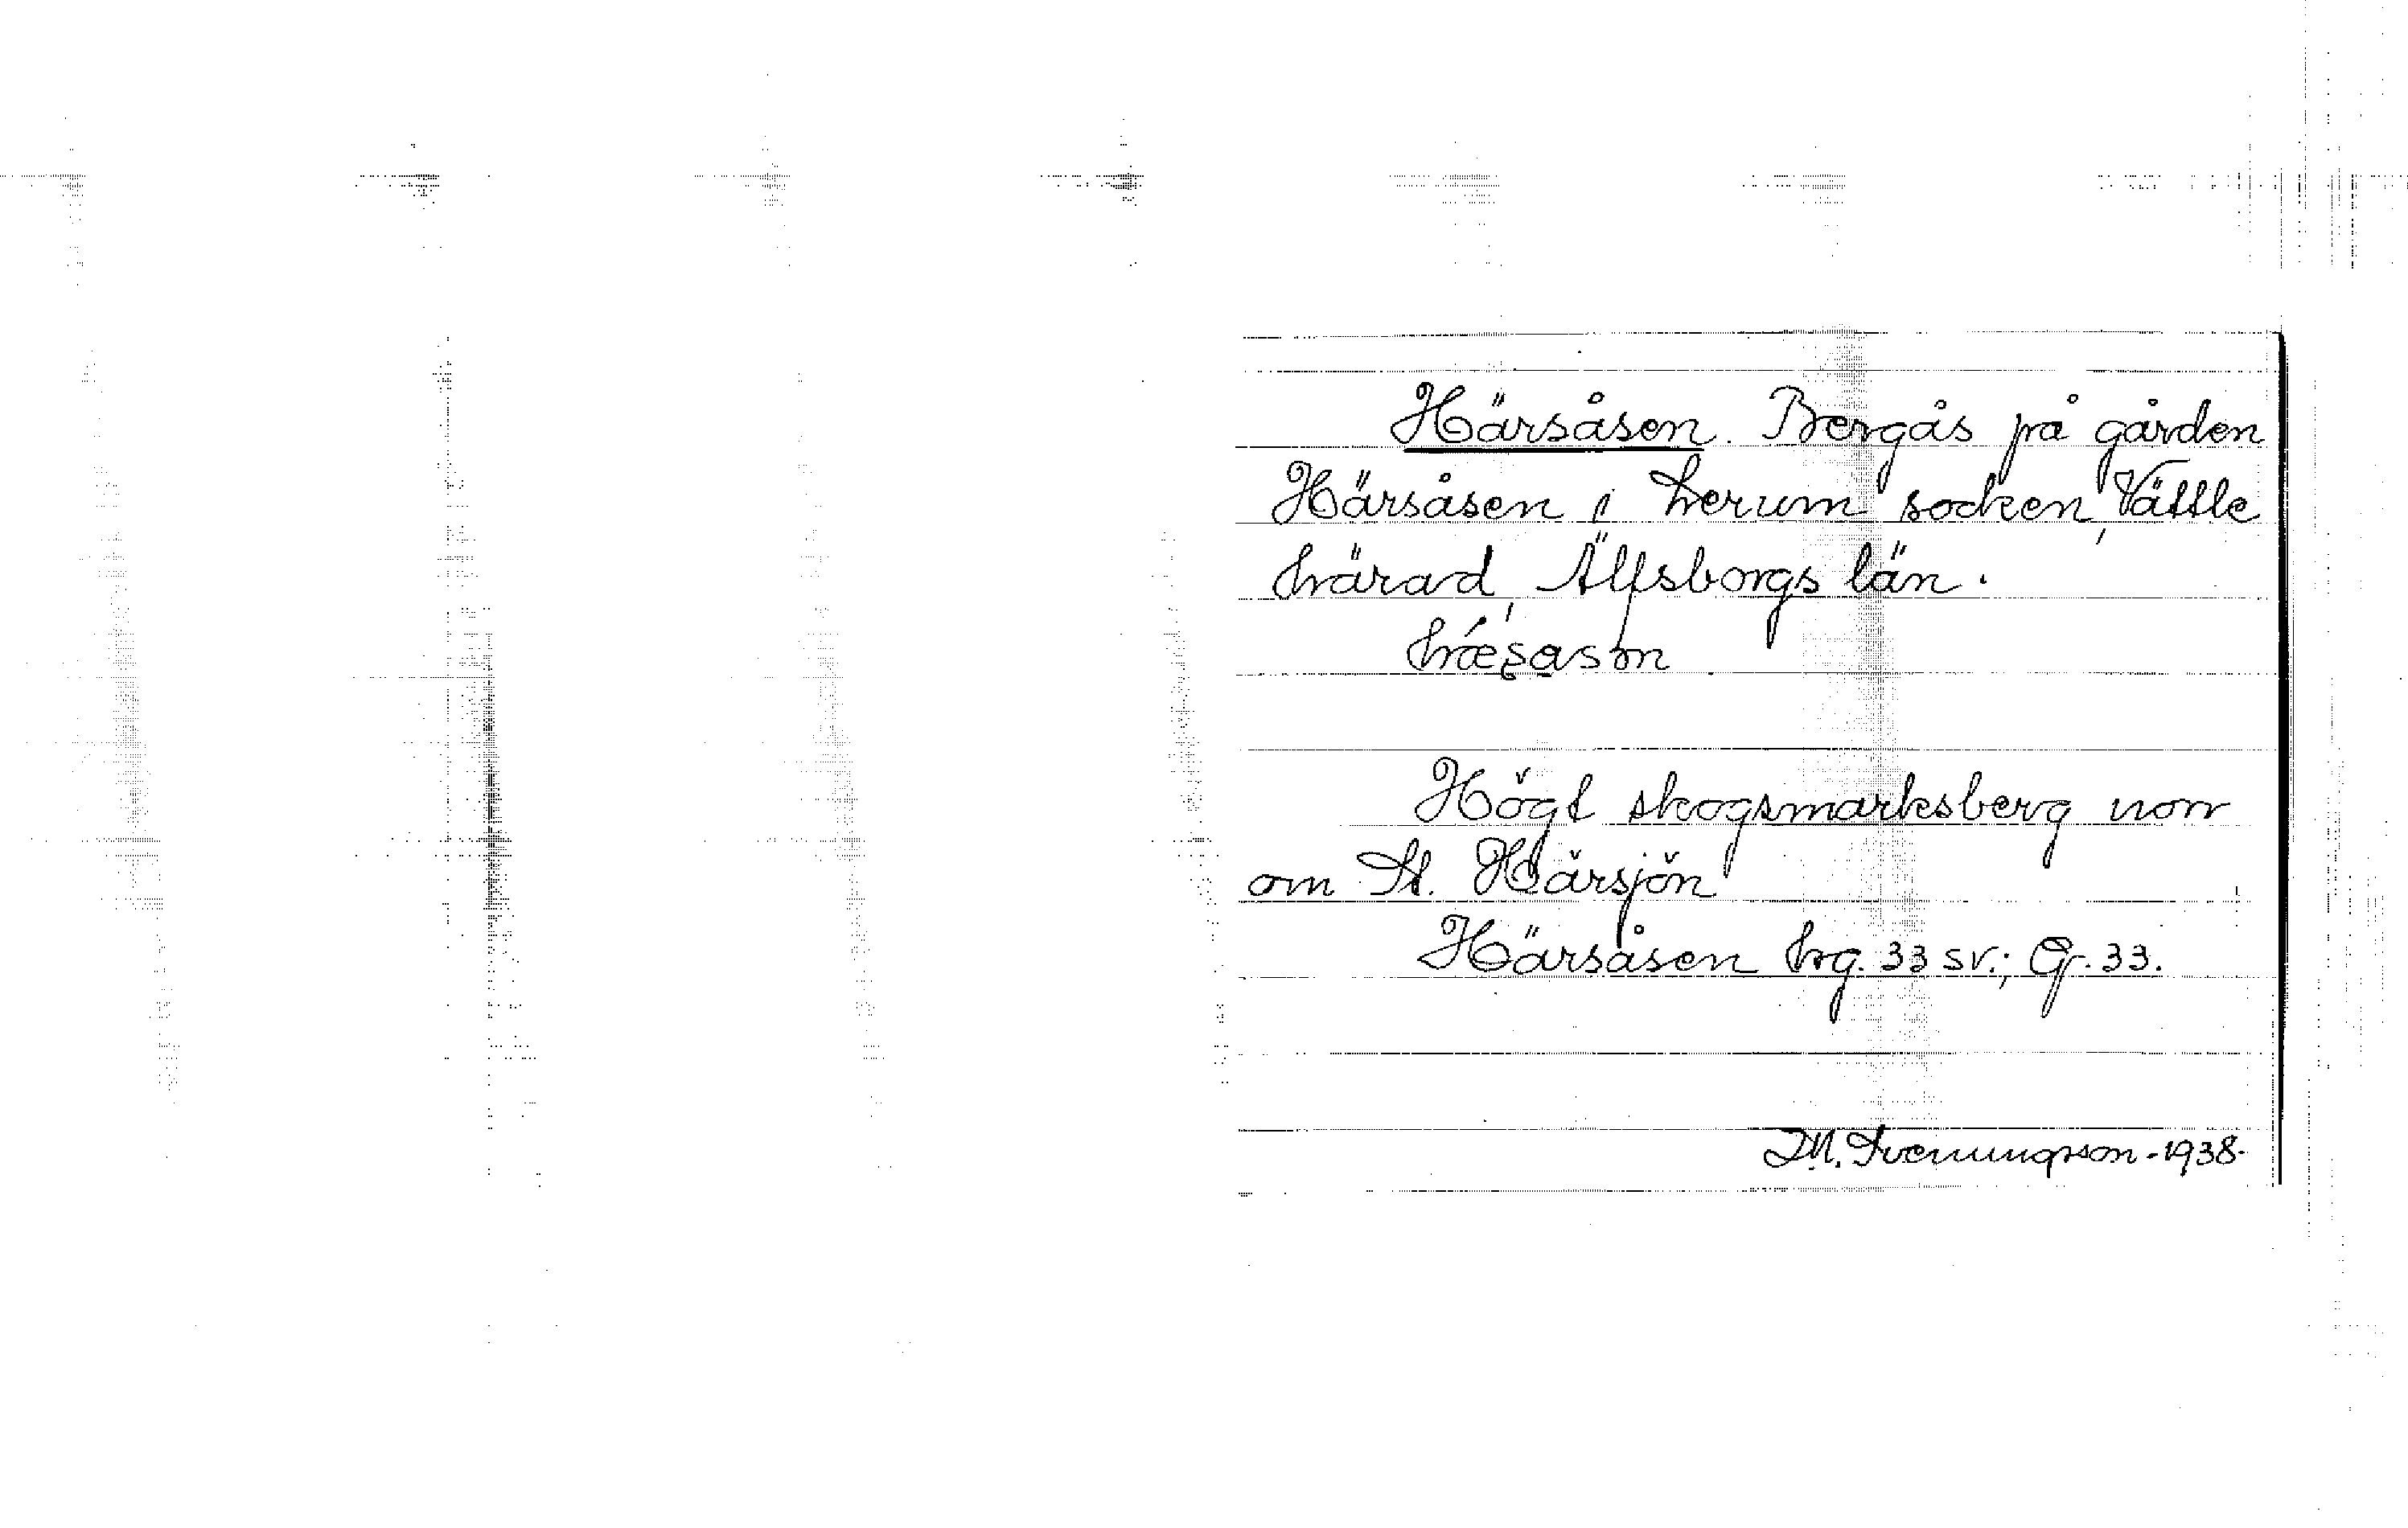 Härsåsen. Bergås på gården
Härsåsen i Lerum socken, Vättle
härad, Älfsborgs län.
Högt skogsmarksberg norr
om St. Härsjön
Härsåsen hg. 33 sv.; Gr. 33.
M. Svenungsson - 1938.